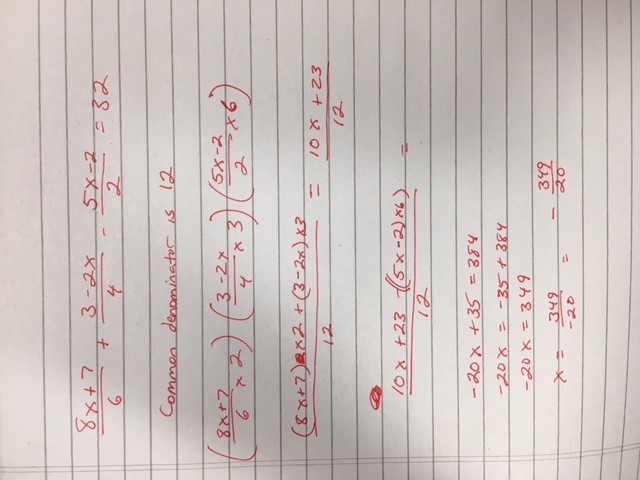 8x+7/6 + 3-2x/4 - 5x-2/2 = 32
Common denominator is 12
(8x+7/6 x 2) (3-2x/4 x 3) (5x-2/2 x 6)
(8x+7)x2 + (3-2x)x3/12 = 10x+23/12
10x+23-((5x-2)x6)/12 =
-20x+35 = 384
-20x = -35+384
-20x = 349
x = 349/-20 = -349/20